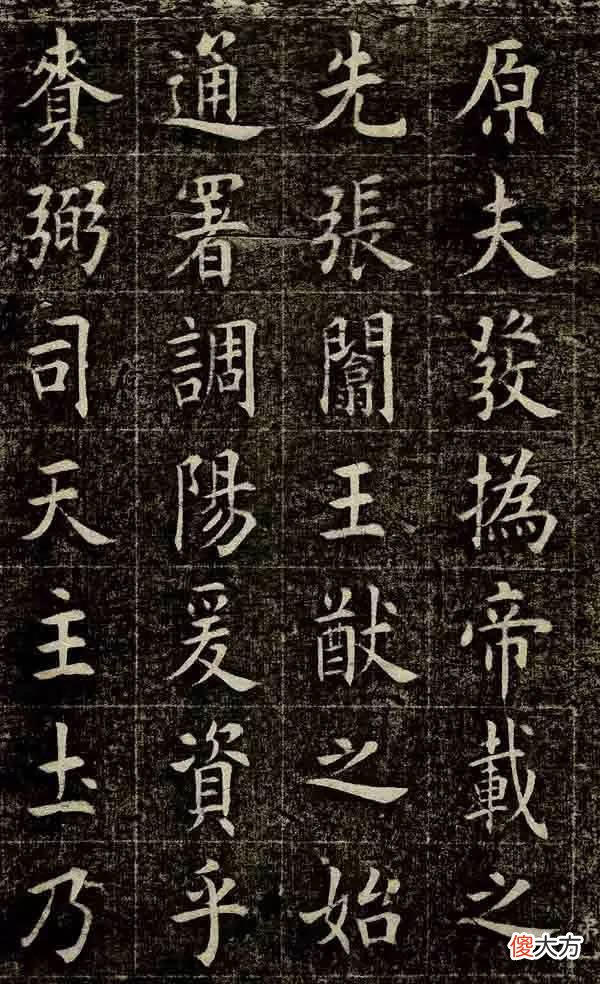 原夫發撝帝載之
先張闟王猷之始
通署調陽爰資乎
賚弼司天主圡乃
傻大方